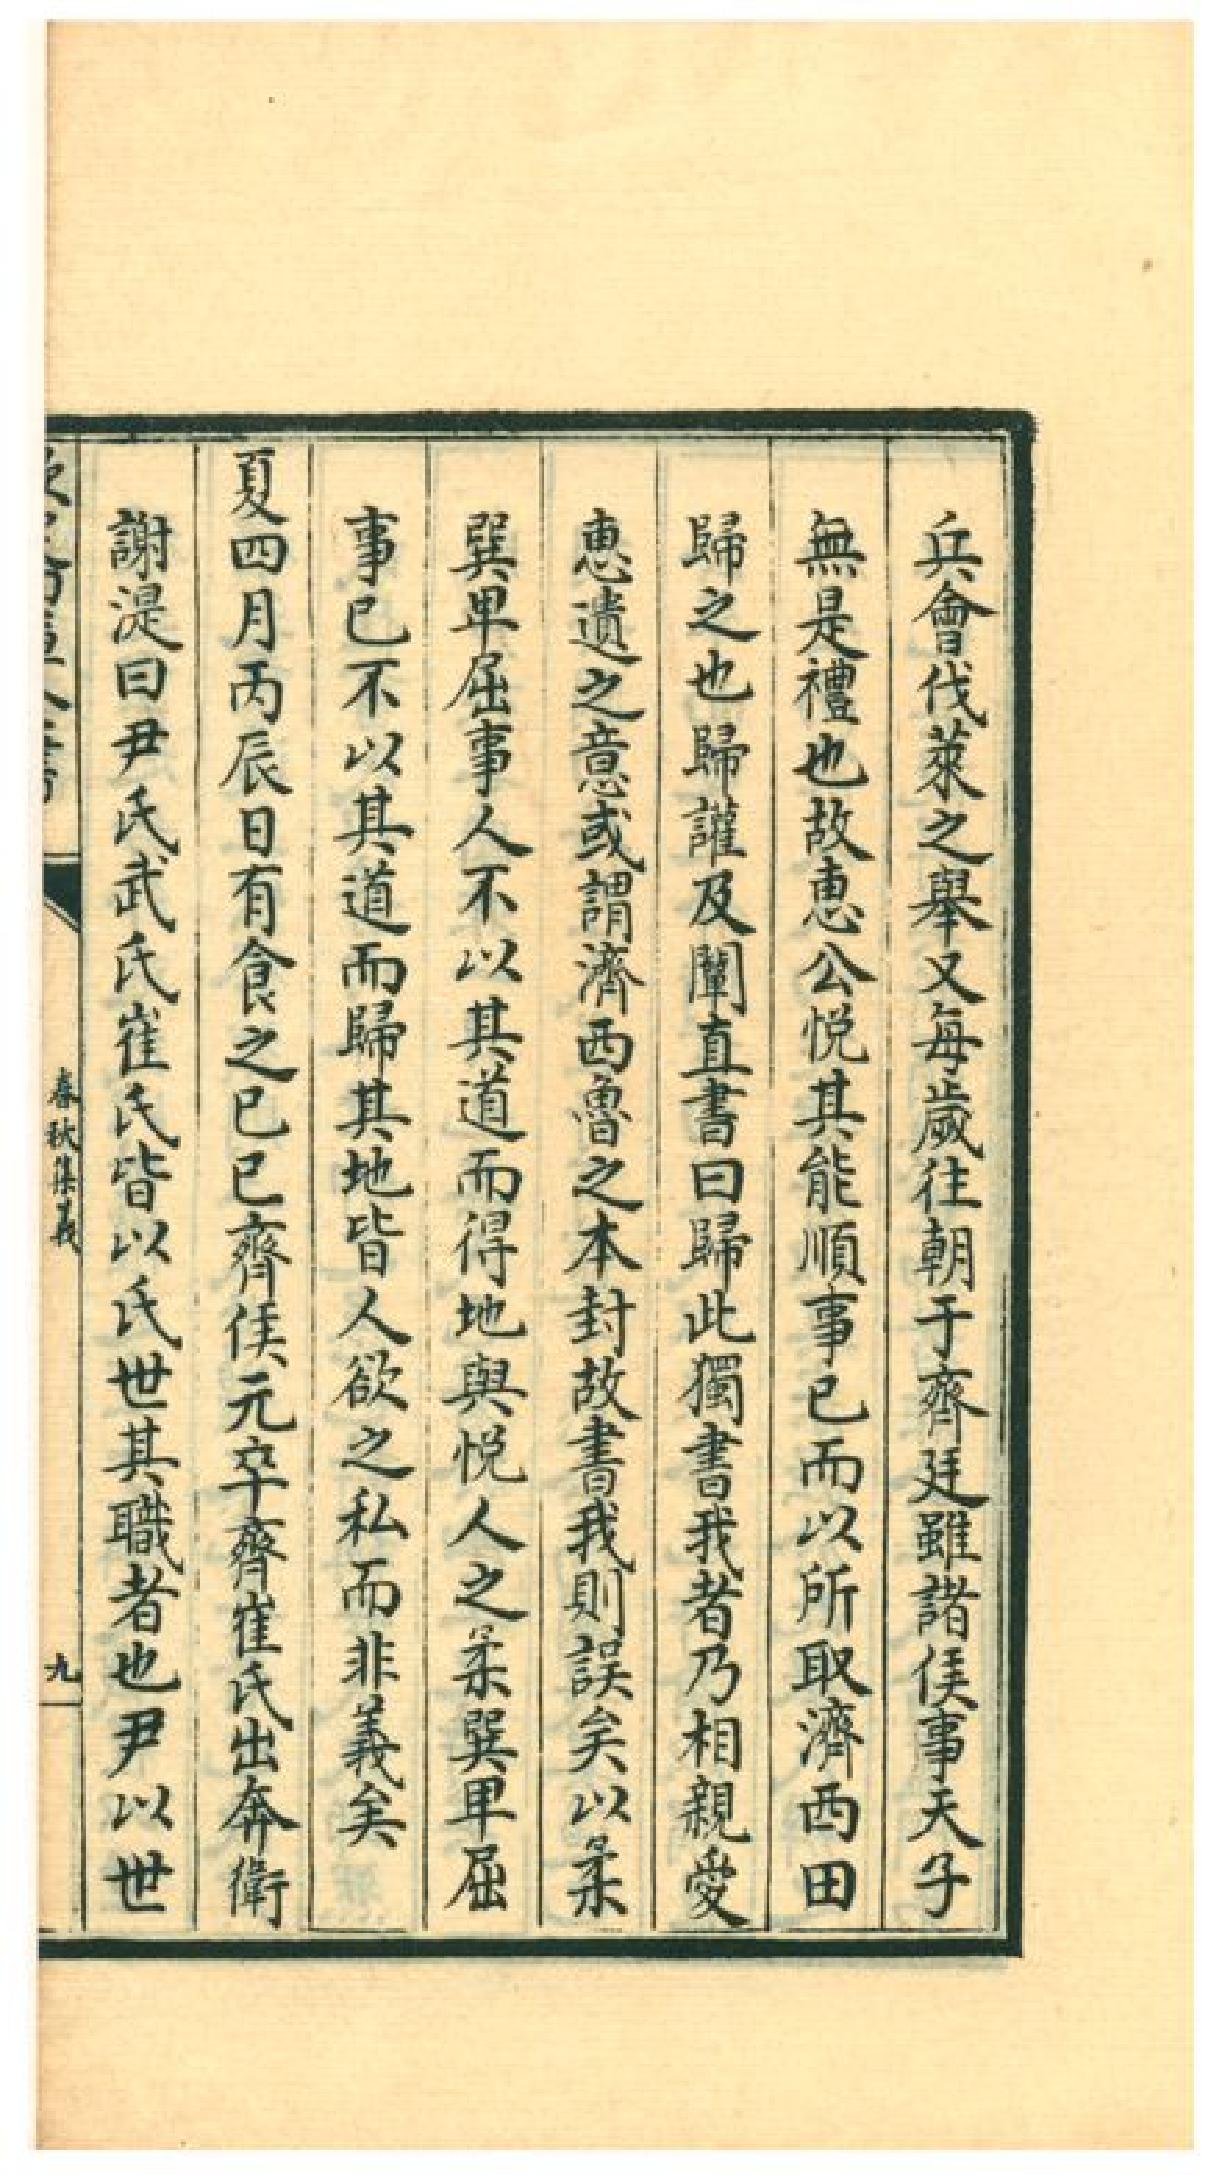 兵會伐萊之舉又每歲往朝于齊廷雖諸侯事天子
無是禮也故惠公悦其能順事已而以所取濟西田
歸之也歸讙及闡直書曰歸此獨書我者乃相親愛
惠遺之意或謂濟西魯之本封故書我則誤矣以柔
巽卑屈事人不以其道而得地與悦人之柔巽卑屈
事已不以其道而歸其地皆人欲之私而非義矣
夏四月丙辰日有食之已已齊侯元卒齊崔氏出奔衛
謝湜曰尹氏武氏崔氏皆以氏世其職者也尹以世
春秋集義
九